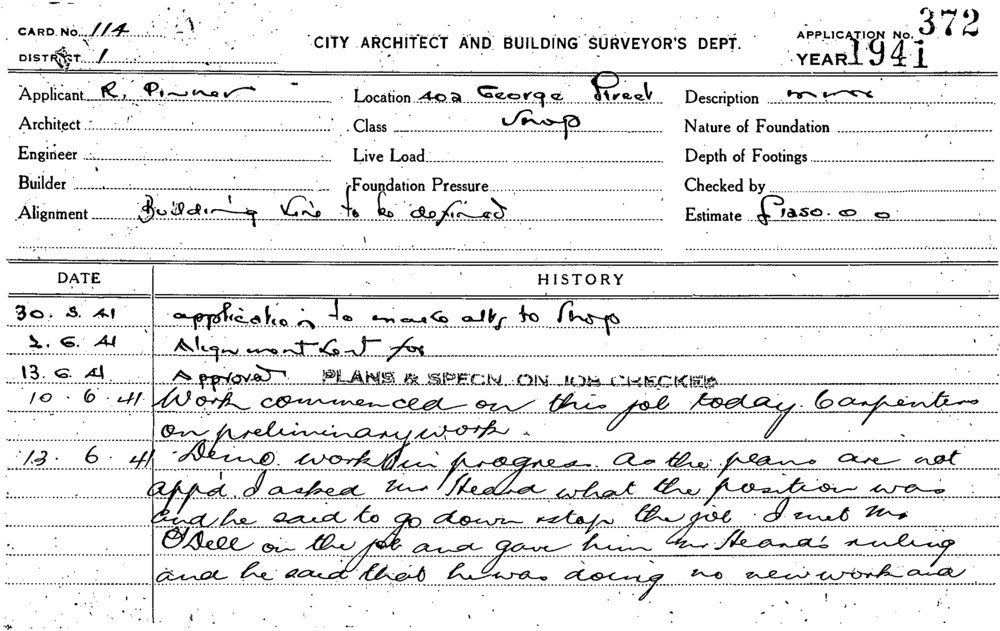 CARD No. 114
DISTRICT 1
CITY ARCHITECT AND BUILDING SURVEYOR'S DEPT.
APPLICATION No. 372
YEAR 1941
Applicant R. Pinner
Location 402 George Street
Description
Architect
Class Shop
Nature of Foundation
Engineer
Live Load
Depth of Footings
Builder
Foundation Pressure
Checked by
Alignment Building line to be defined
Estimate £1250.0 0
DATE
HISTORY
30. 5. 41 application to make alts to shop
2. 6. 41 Alignment sent for
13. 6. 41 Approved PLANS & SPECN. ON JOB CHECKED
10. 6. 41 Work commenced on this job today. Carpenters
on preliminary work.
13. 6. 41 Demo. work in progress. As the plans are not
app'd. I asked Mr Heard what the position was
and he said to go down & stop the job. I met Mr
O'Dell on the job and gave him Mr Heard's ruling
and he said that he was doing no new work and